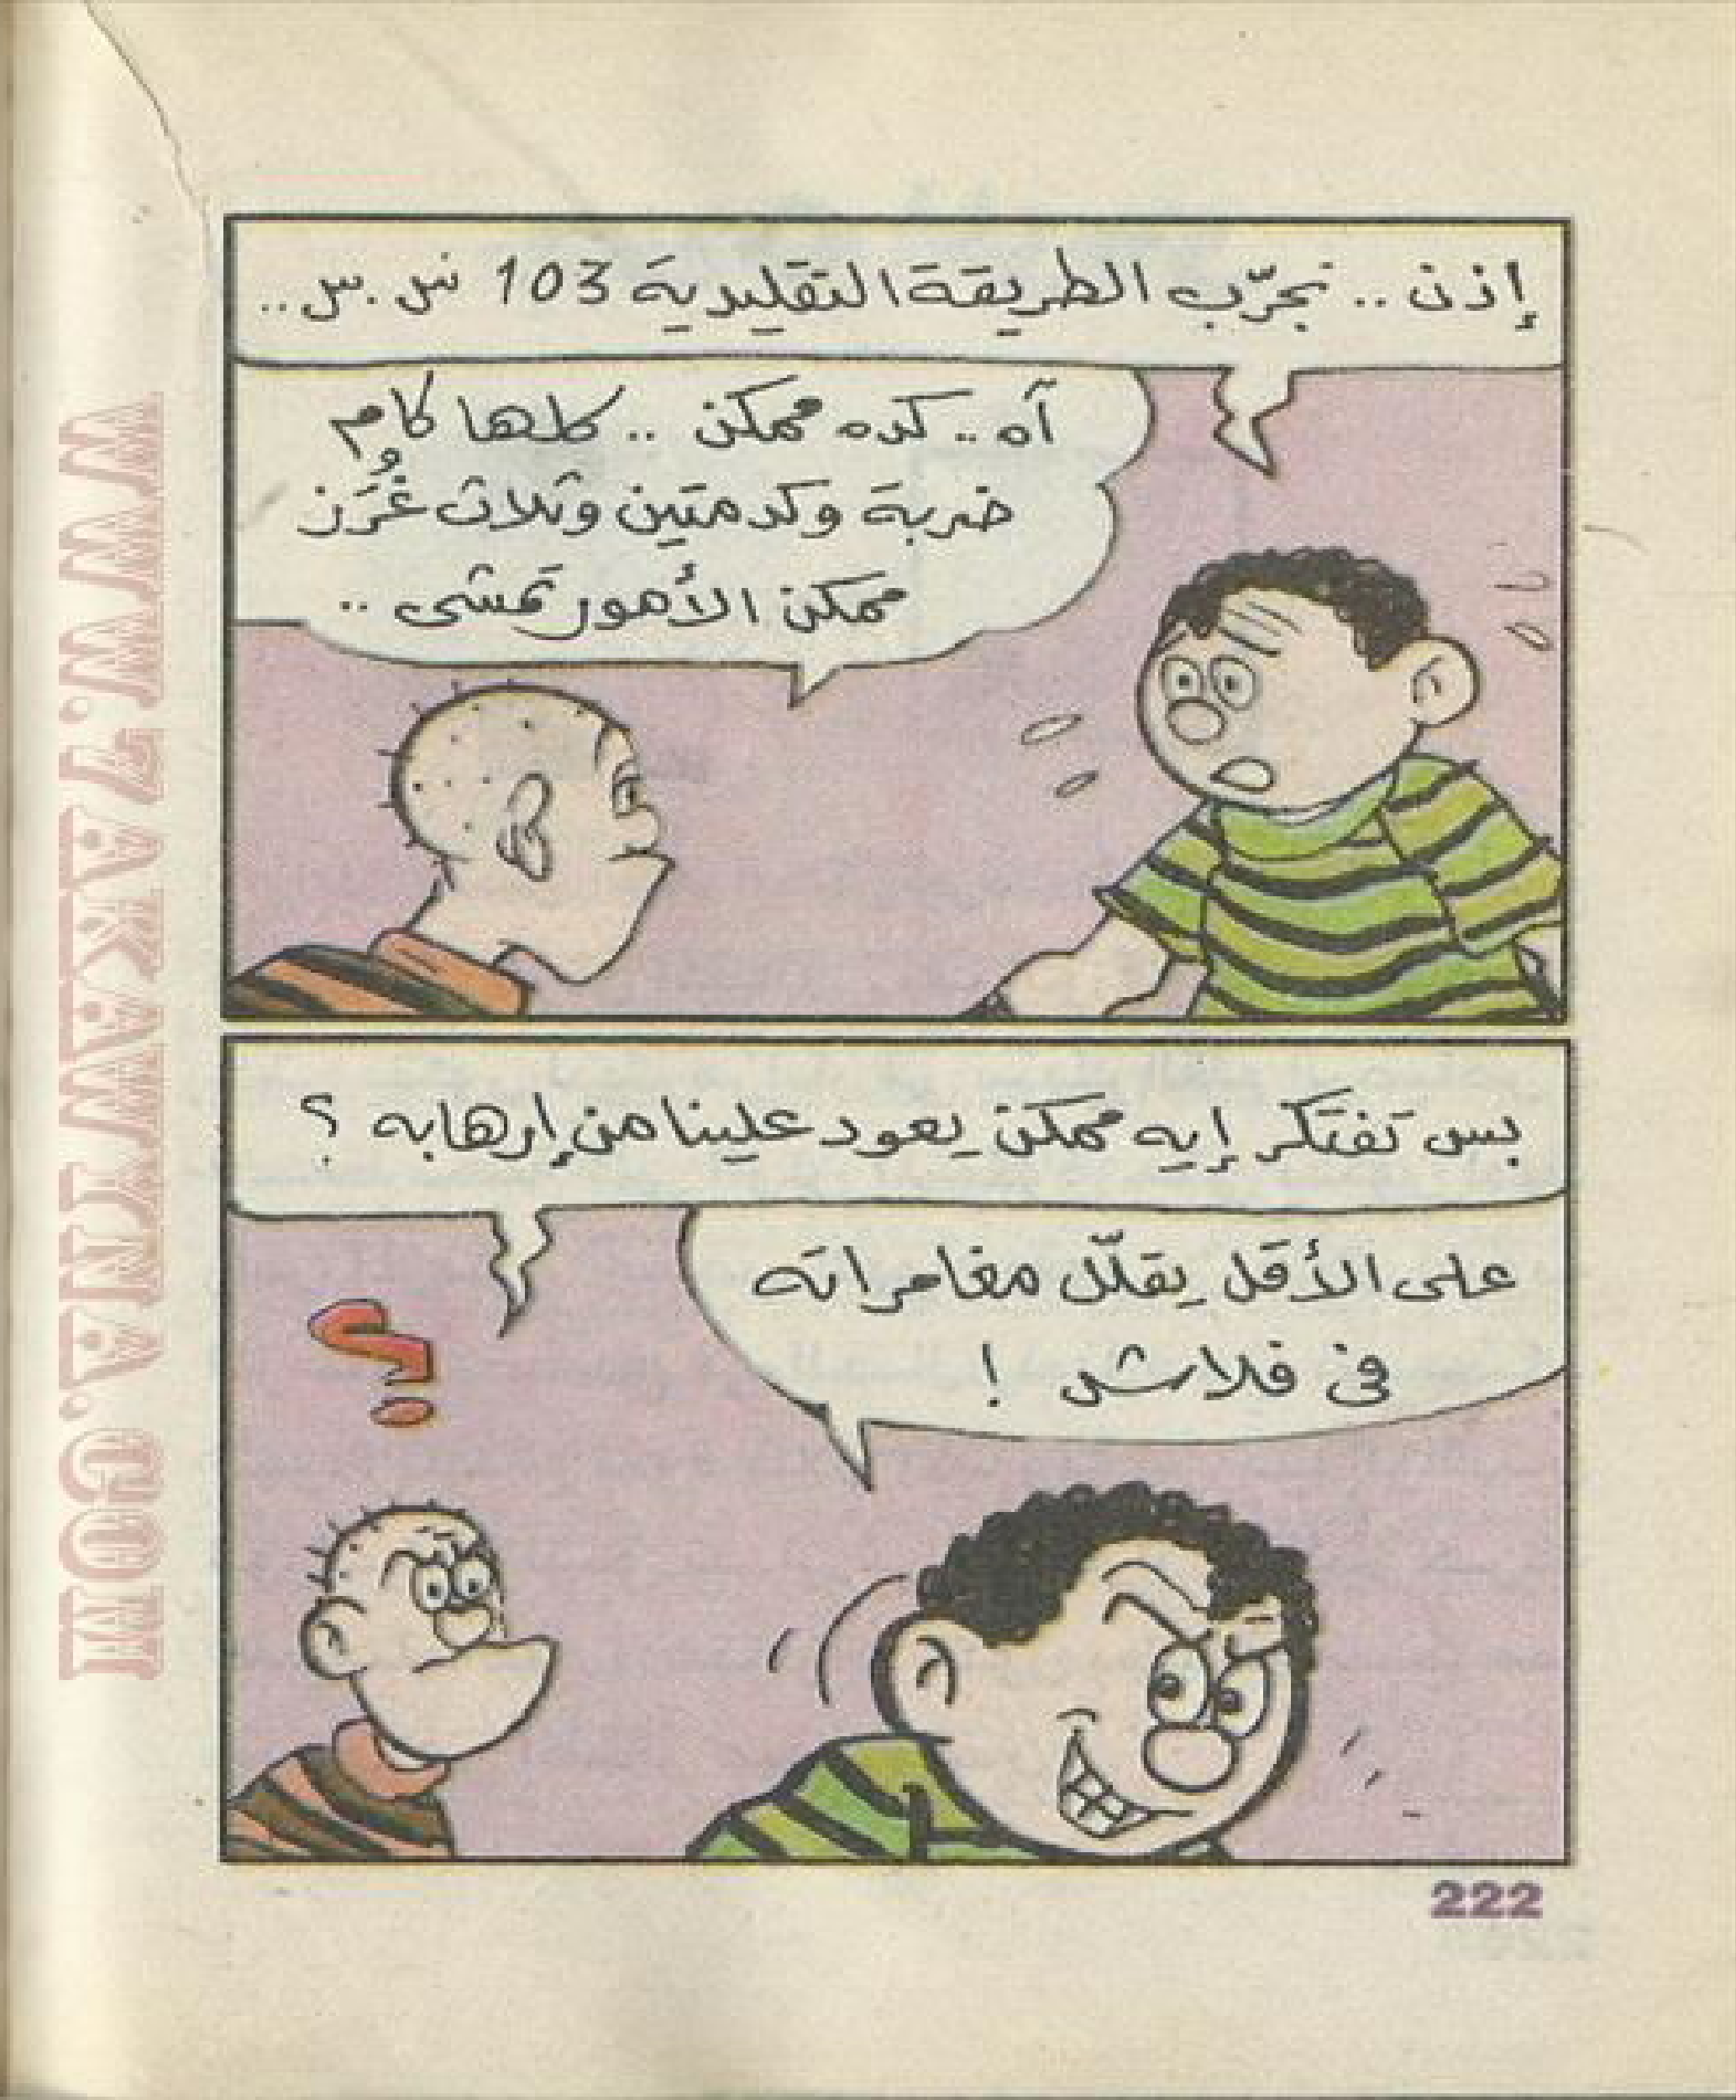 إذن .. نجرّب الطريقة التقليدية 103 س.س ..
آه .. كده ممكن .. كلها كام
ضربة وكدمتين وتلات غُرَز
ممكن الأمور تمشى ..
بس تفتكر إيه ممكن يعود علينا من إرهابه ؟
على الأقل يقلّل مغامراته
فى فلاش !
؟
222
WWW.7AKAWYNA.COM